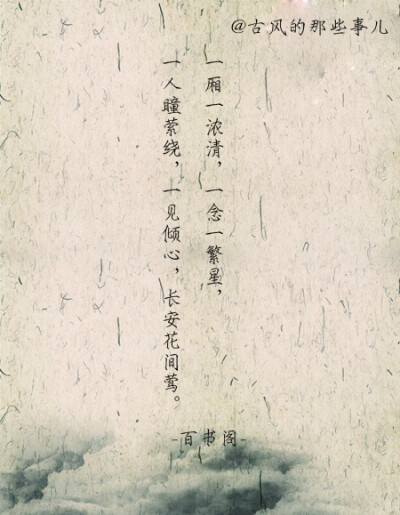 @古风的那些事儿
一厢一浓清，一念一繁星，
一人瞳萦绕，一见倾心，长安花间莺。
-百书阁-